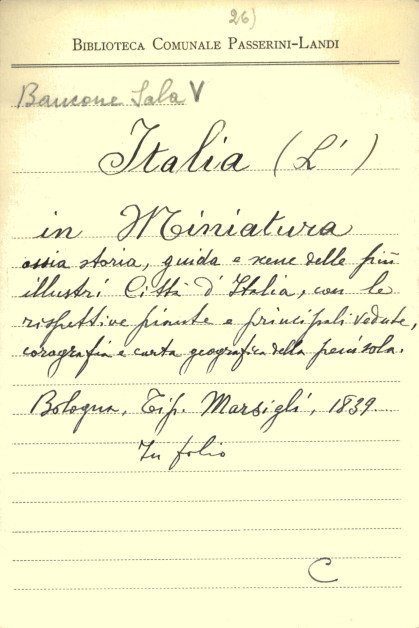 26)
BIBLIOTECA COMUNALE PASSERINI-LANDI
Bancone Sala V
Italia (L')
in Miniatura
ossia storia, guida e scene delle più
illustri Città d'Italia, con le
rispettive piante e principali vedute,
corografia e carta geografica della penisola.
Bologna, Tip. Marsigli, 1839.
In folio
C